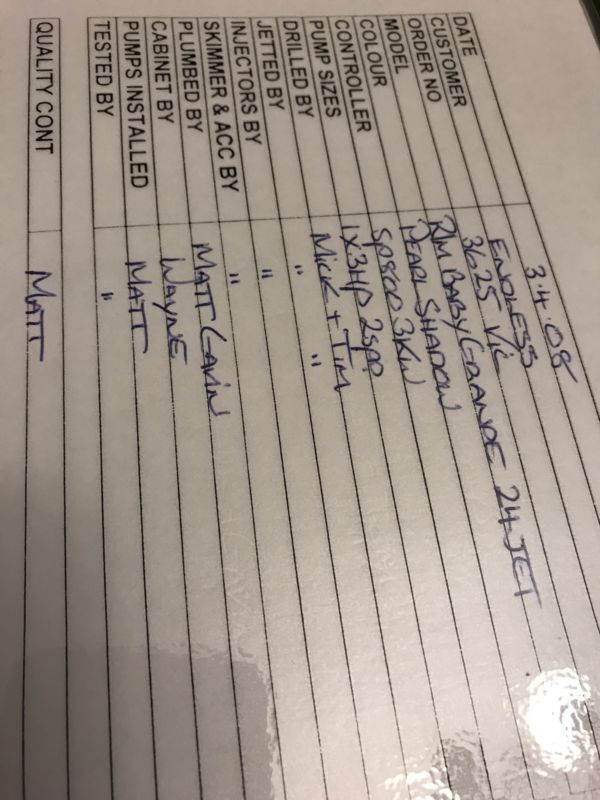 DATE 3.4.08
CUSTOMER ENDLESS
ORDER NO 3625 Vic
MODEL RIM BABY GRANDE 24 JET
COLOUR PEARL SHADOW
CONTROLLER SP800 3KW
PUMP SIZES 1X3HP 2SPD
DRILLED BY MICK + TIM
JETTED BY " "
INJECTORS BY "
SKIMMER & ACC BY "
PLUMBED BY MATT GAVIN
CABINET BY WAYNE
PUMPS INSTALLED MATT
TESTED BY "
QUALITY CONT MATT